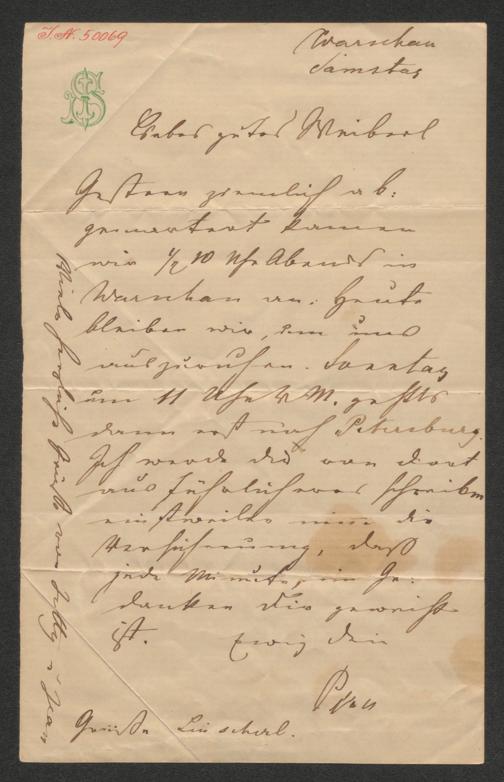 I.N. 50069
JS
Warschau
Samstag
Liebes gutes Weiberl
Gestern ziemlich ab:
gemartert kamen
wir 1/2 10 Uhr Abends in
Warschau an. Heute
bleiben wir, um uns
auszuruhen. Sonntag
um 11 Uhr V M. gehts
dann erst nach Petersburg.
Ich werde dir von dort
aus führlicheres schreiben
einstweilen nimm die
Versicherung, daß
jede Minute, im Ge:
danken Dir geweiht
ist. Ewig dein
Grüße
Viele herzliche Grüße von